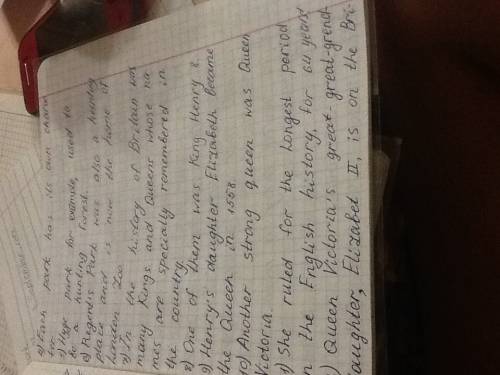 Each park has its own charac
ter.
5) Hyde park for example, used to
be a hunting forest.
6) Regent's Park was also a hunting
place and is now the home of
London Zoo.
7) In the history of Britain was
many Kings and Queens whose na
mes are specially remembered in
the country.
8) One of them was King Henry 8.
9) Henry's daughter Elizabeth became
the Queen in 1558.
10) Another strong queen was Queen
Victoria.
1) She ruled for the longest period
in the English history, for 64 years!
) Queen Victoria's great-great-grend-
daughter, Elizabet II, is on the Bri-